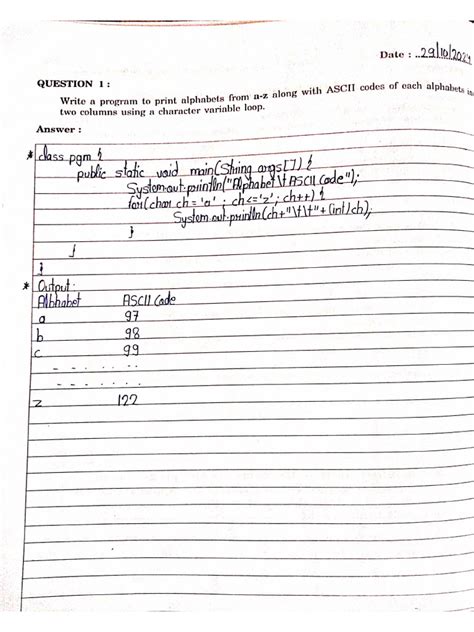 Date : ..29/10/2024
QUESTION 1 :
Write a program to print alphabets from a-z along with ASCII codes of each alphabets in
two columns using a character variable loop.
Answer :
* class pgm {
public static void main(String args[]) {
System.out.println("Alphabet\tASCII Code");
for(char ch = 'a' ; ch<='z'; ch++) {
System.out.println(ch+"\t\t"+(int)ch);
}
}
}
* Output:
Albhabet ASCII Code
a 97
b 98
c 99
-- ..... .....
-- ..... .....
z 122